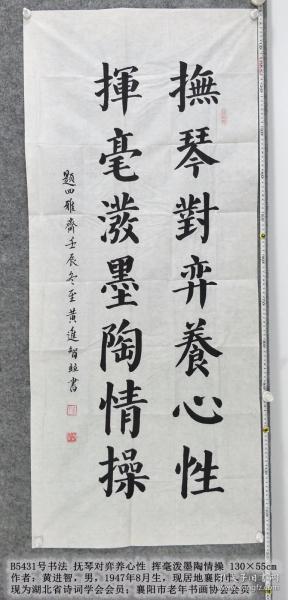 撫琴對弈養心性
揮毫潑墨陶情操
題四雅齋壬辰冬至黄進智並書
B5431号书法 抚琴对弈养心性 挥毫泼墨陶情操 130×55cm
作者：黄进智，男，1947年8月生，现居地襄阳
现为湖北省诗词学会会员；襄阳市老年书画协会会员